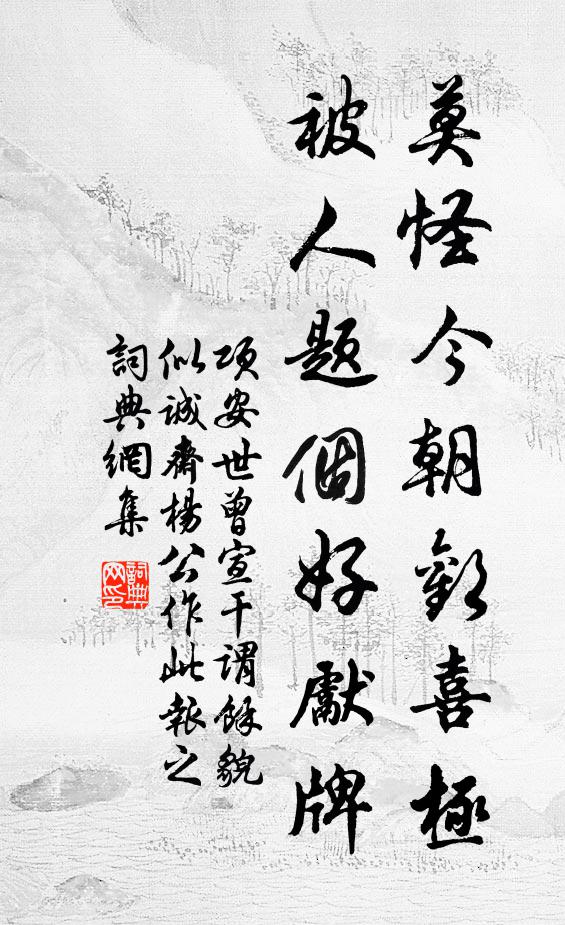 莫怪今朝歡喜極
被人題個好獻牌
項安世曾宣干謂餘貌
似誠齋楊公作此報之
詞典網集
詞典
网印